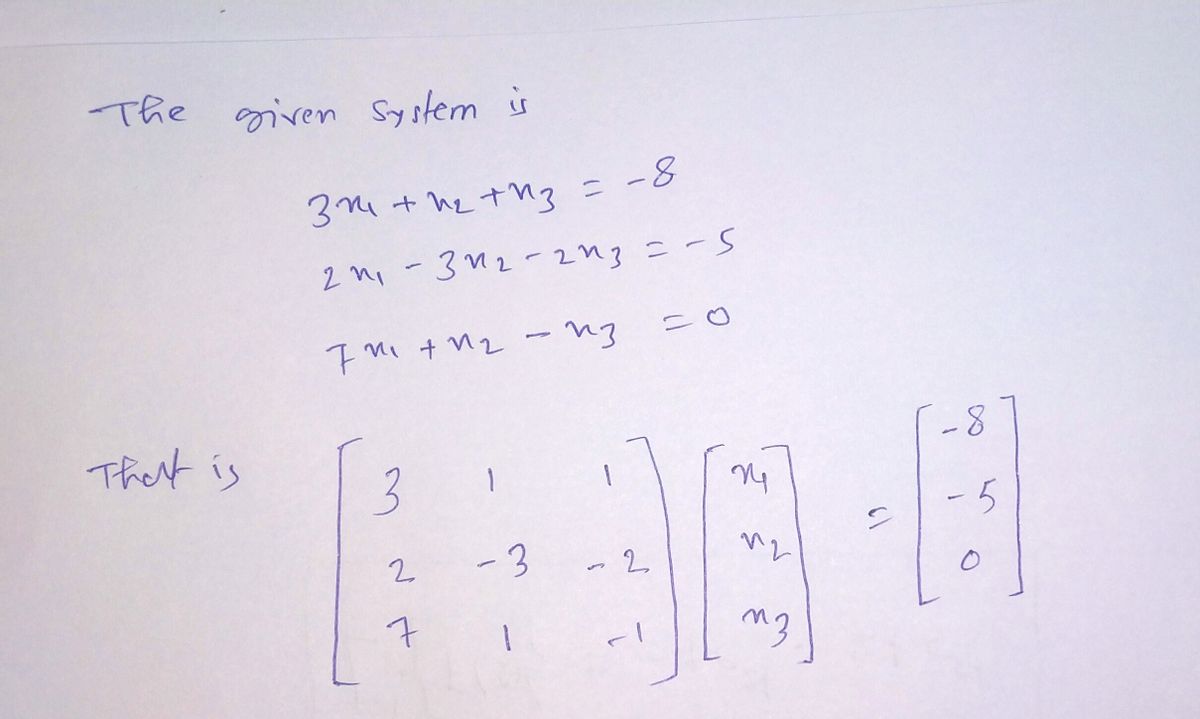 The given system is
3x₁ + x₂ + x₃ = -8
2x₁ - 3x₂ - 2x₃ = -5
7x₁ + x₂ - x₃ = 0
That is [3 1 1; 2 -3 -2; 7 1 -1] [x₁; x₂; x₃] = [-8; -5; 0]